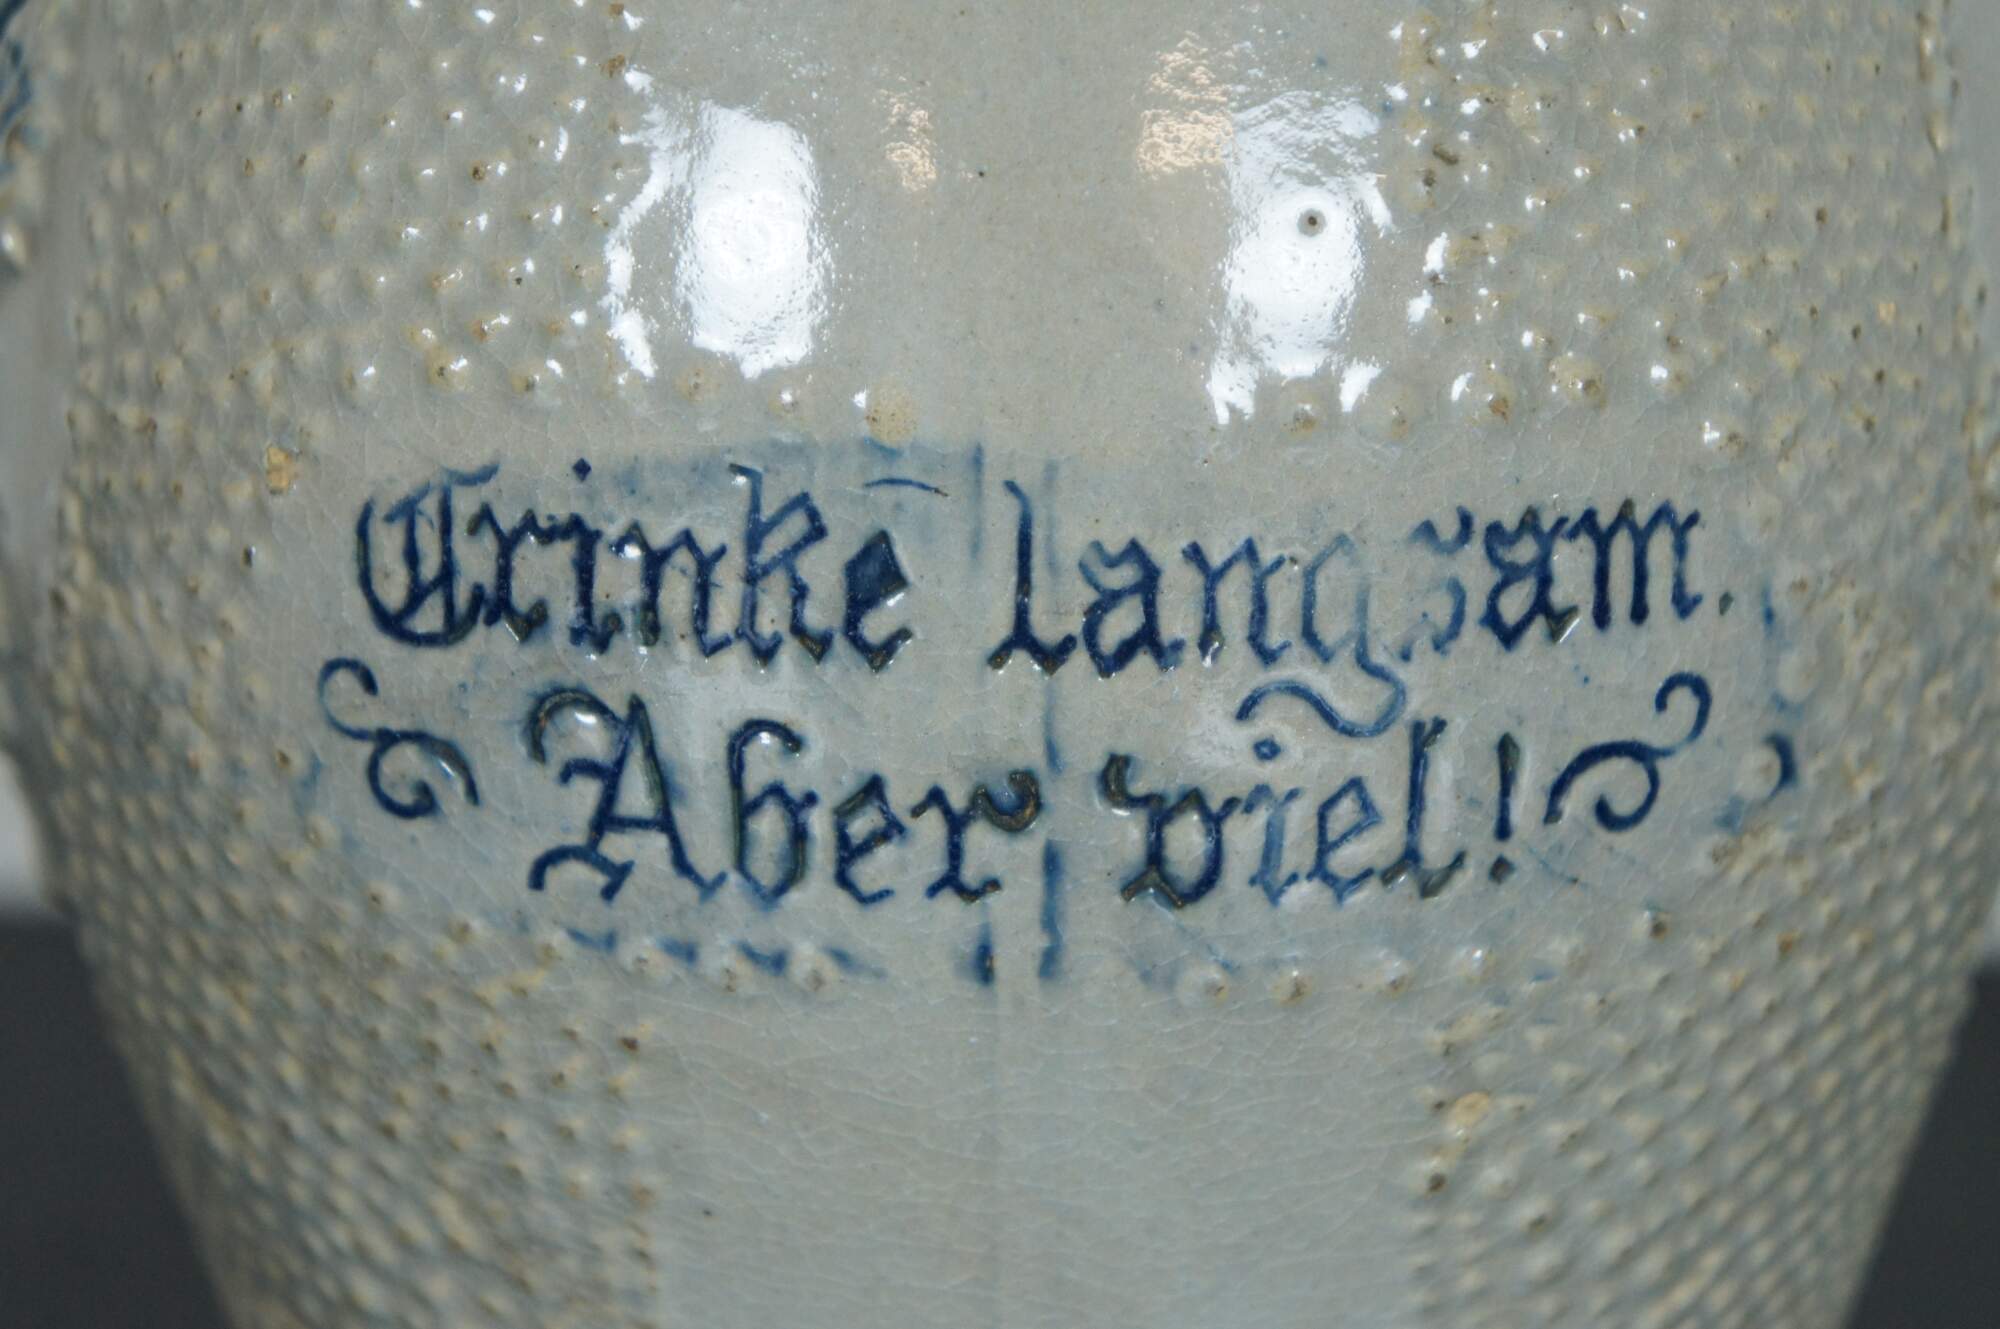 Trinke langsam.
Aber viel!